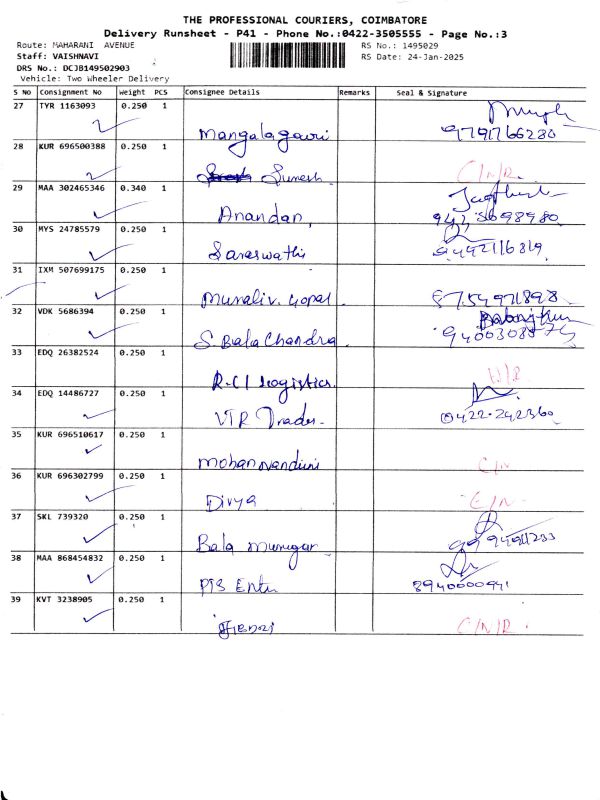 THE PROFESSIONAL COURIERS, COIMBATORE
Delivery Runsheet - P41 - Phone No.:0422-3505555 - Page No.:3
Route: MAHARANI AVENUE RS No.: 1495029
Staff: VAISHNAVI RS Date: 24-Jan-2025
DRS No.: DCJB149502903
Vehicle: Two Wheeler Delivery
S No Consignment No Weight PCS Consignee Details Remarks Seal & Signature
27 TYR 1163093 0.250 1
Mangalagowri 9791766280
28 KUR 696500388 0.250 1
Sumesh C/N/R.
29 MAA 302465346 0.340 1
Anandan,
30 MYS 24785579 0.250 1
Saraswathi 9442116819
31 IXM 507699175 0.250 1
Murali v. Gopal 8754971898
32 VDK 5686394 0.250 1
S. Bala Chandra
33 EDQ 26382524 0.250 1
R.C.I Logistics.
34 EDQ 14486727 0.250 1
VTR Trades. 0422-242360
35 KUR 696510617 0.250 1
Mohan nandini C/N
36 KUR 696302799 0.250 1
Divya C/N
37 SKL 739320 0.250 1
Bala murugan
38 MAA 868454832 0.250 1
PJS Ent 8940000941
39 KVT 3238905 0.250 1
C/N/R.